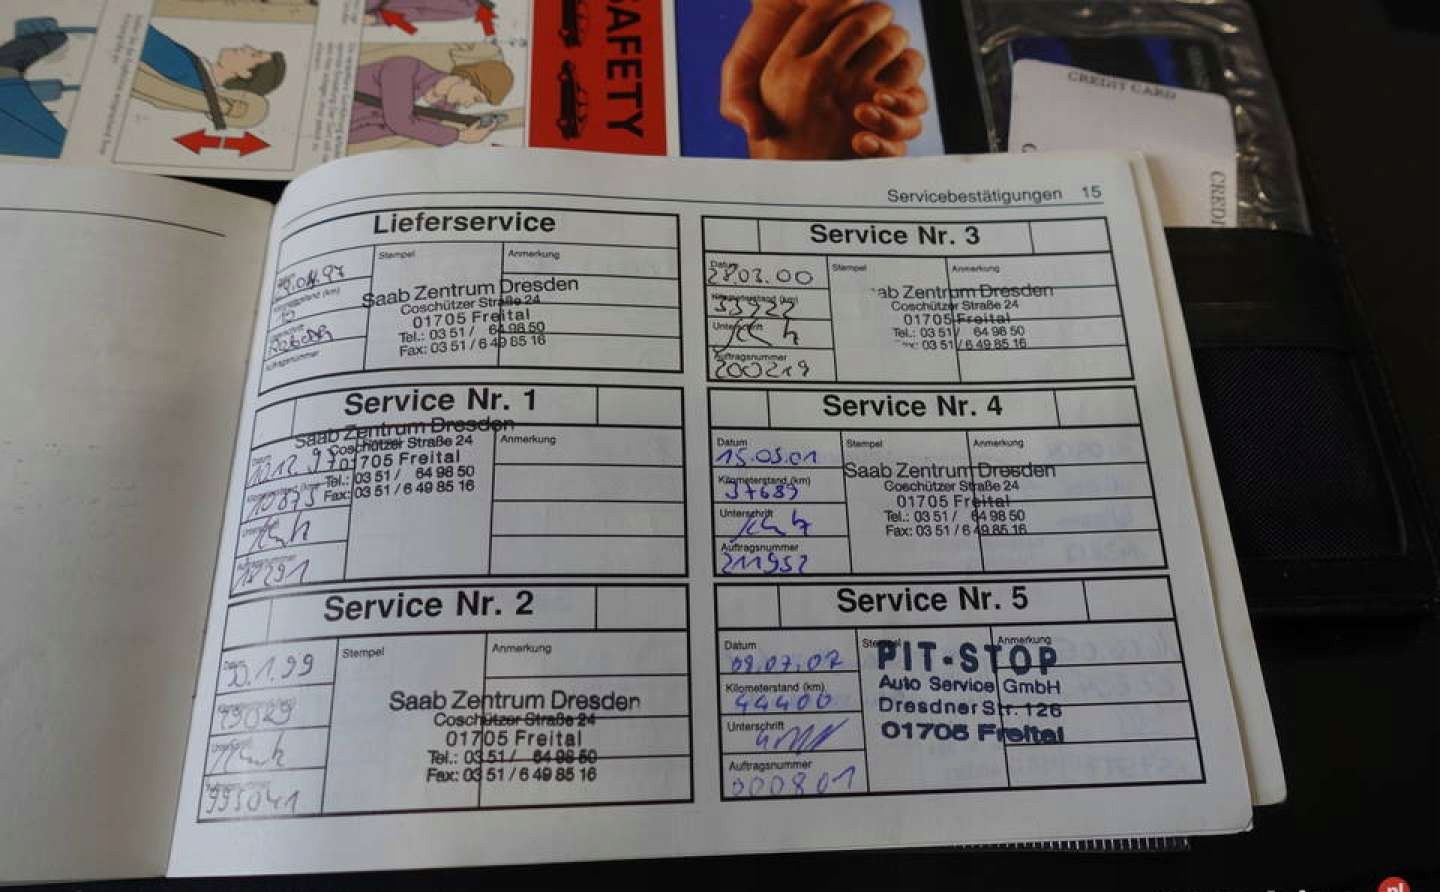 SAFETY
CREDIT CARD
CREDI
Servicebestätigungen 15
Lieferservice
Stempel
Anmerkung
Saab Zentrum Dresden
Coschützer Straße 24
01705 Freital
Tel.: 03 51 / 64 98 50
Fax: 03 51 / 6 49 85 16
Auftragsnummer
Service Nr. 1
Anmerkung
Saab Zentrum Dresden
Coschützer Straße 24
01705 Freital
Tel.: 03 51 / 64 98 50
Fax: 03 51 / 6 49 85 16
10873
Service Nr. 2
Stempel
Anmerkung
Saab Zentrum Dresden
Coschützer Straße 24
01705 Freital
Tel.: 03 51 / 64 98 50
Fax: 03 51 / 6 49 85 16
995041
Service Nr. 3
Datum
28.03.00
Stempel
Anmerkung
Kilometerstand (km)
33922
Unterschrift
Auftragsnummer
200219
ab Zentrum Dresden
Coschützer Straße 24
01705 Freital
Tel.: 03 51 / 64 98 50
03 51 / 6 49 85 16
Service Nr. 4
Datum
15.03.01
Stempel
Anmerkung
Kilometerstand (km)
37689
Unterschrift
Auftragsnummer
211952
Saab Zentrum Dresden
Coschützer Straße 24
01705 Freital
Tel.: 03 51 / 64 98 50
Fax: 03 51 / 6 49 85 16
Service Nr. 5
Datum
09.07.02
Stempel
Anmerkung
Kilometerstand (km)
44400
Unterschrift
Auftragsnummer
000801
PIT-STOP
Auto Service GmbH
Dresdner Str. 126
01705 Freital